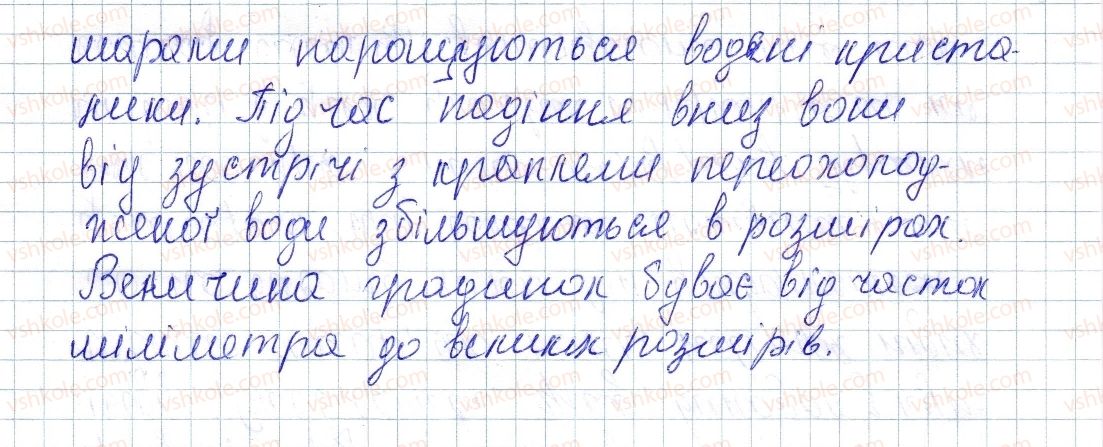 шарами нарощуються водяні криста-
лики. Під час падіння вниз вони
від зустрічі з краплями переохолод-
женої води збільшуються в розмірах.
Величина градинок буває від часток
міліметра до великих розмірів.